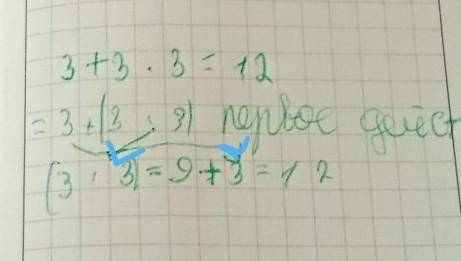 3 + 3 · 3 = 12
= 3 + (3 : 3) первое дейст
(3 · 3) = 9 + 3 = 12